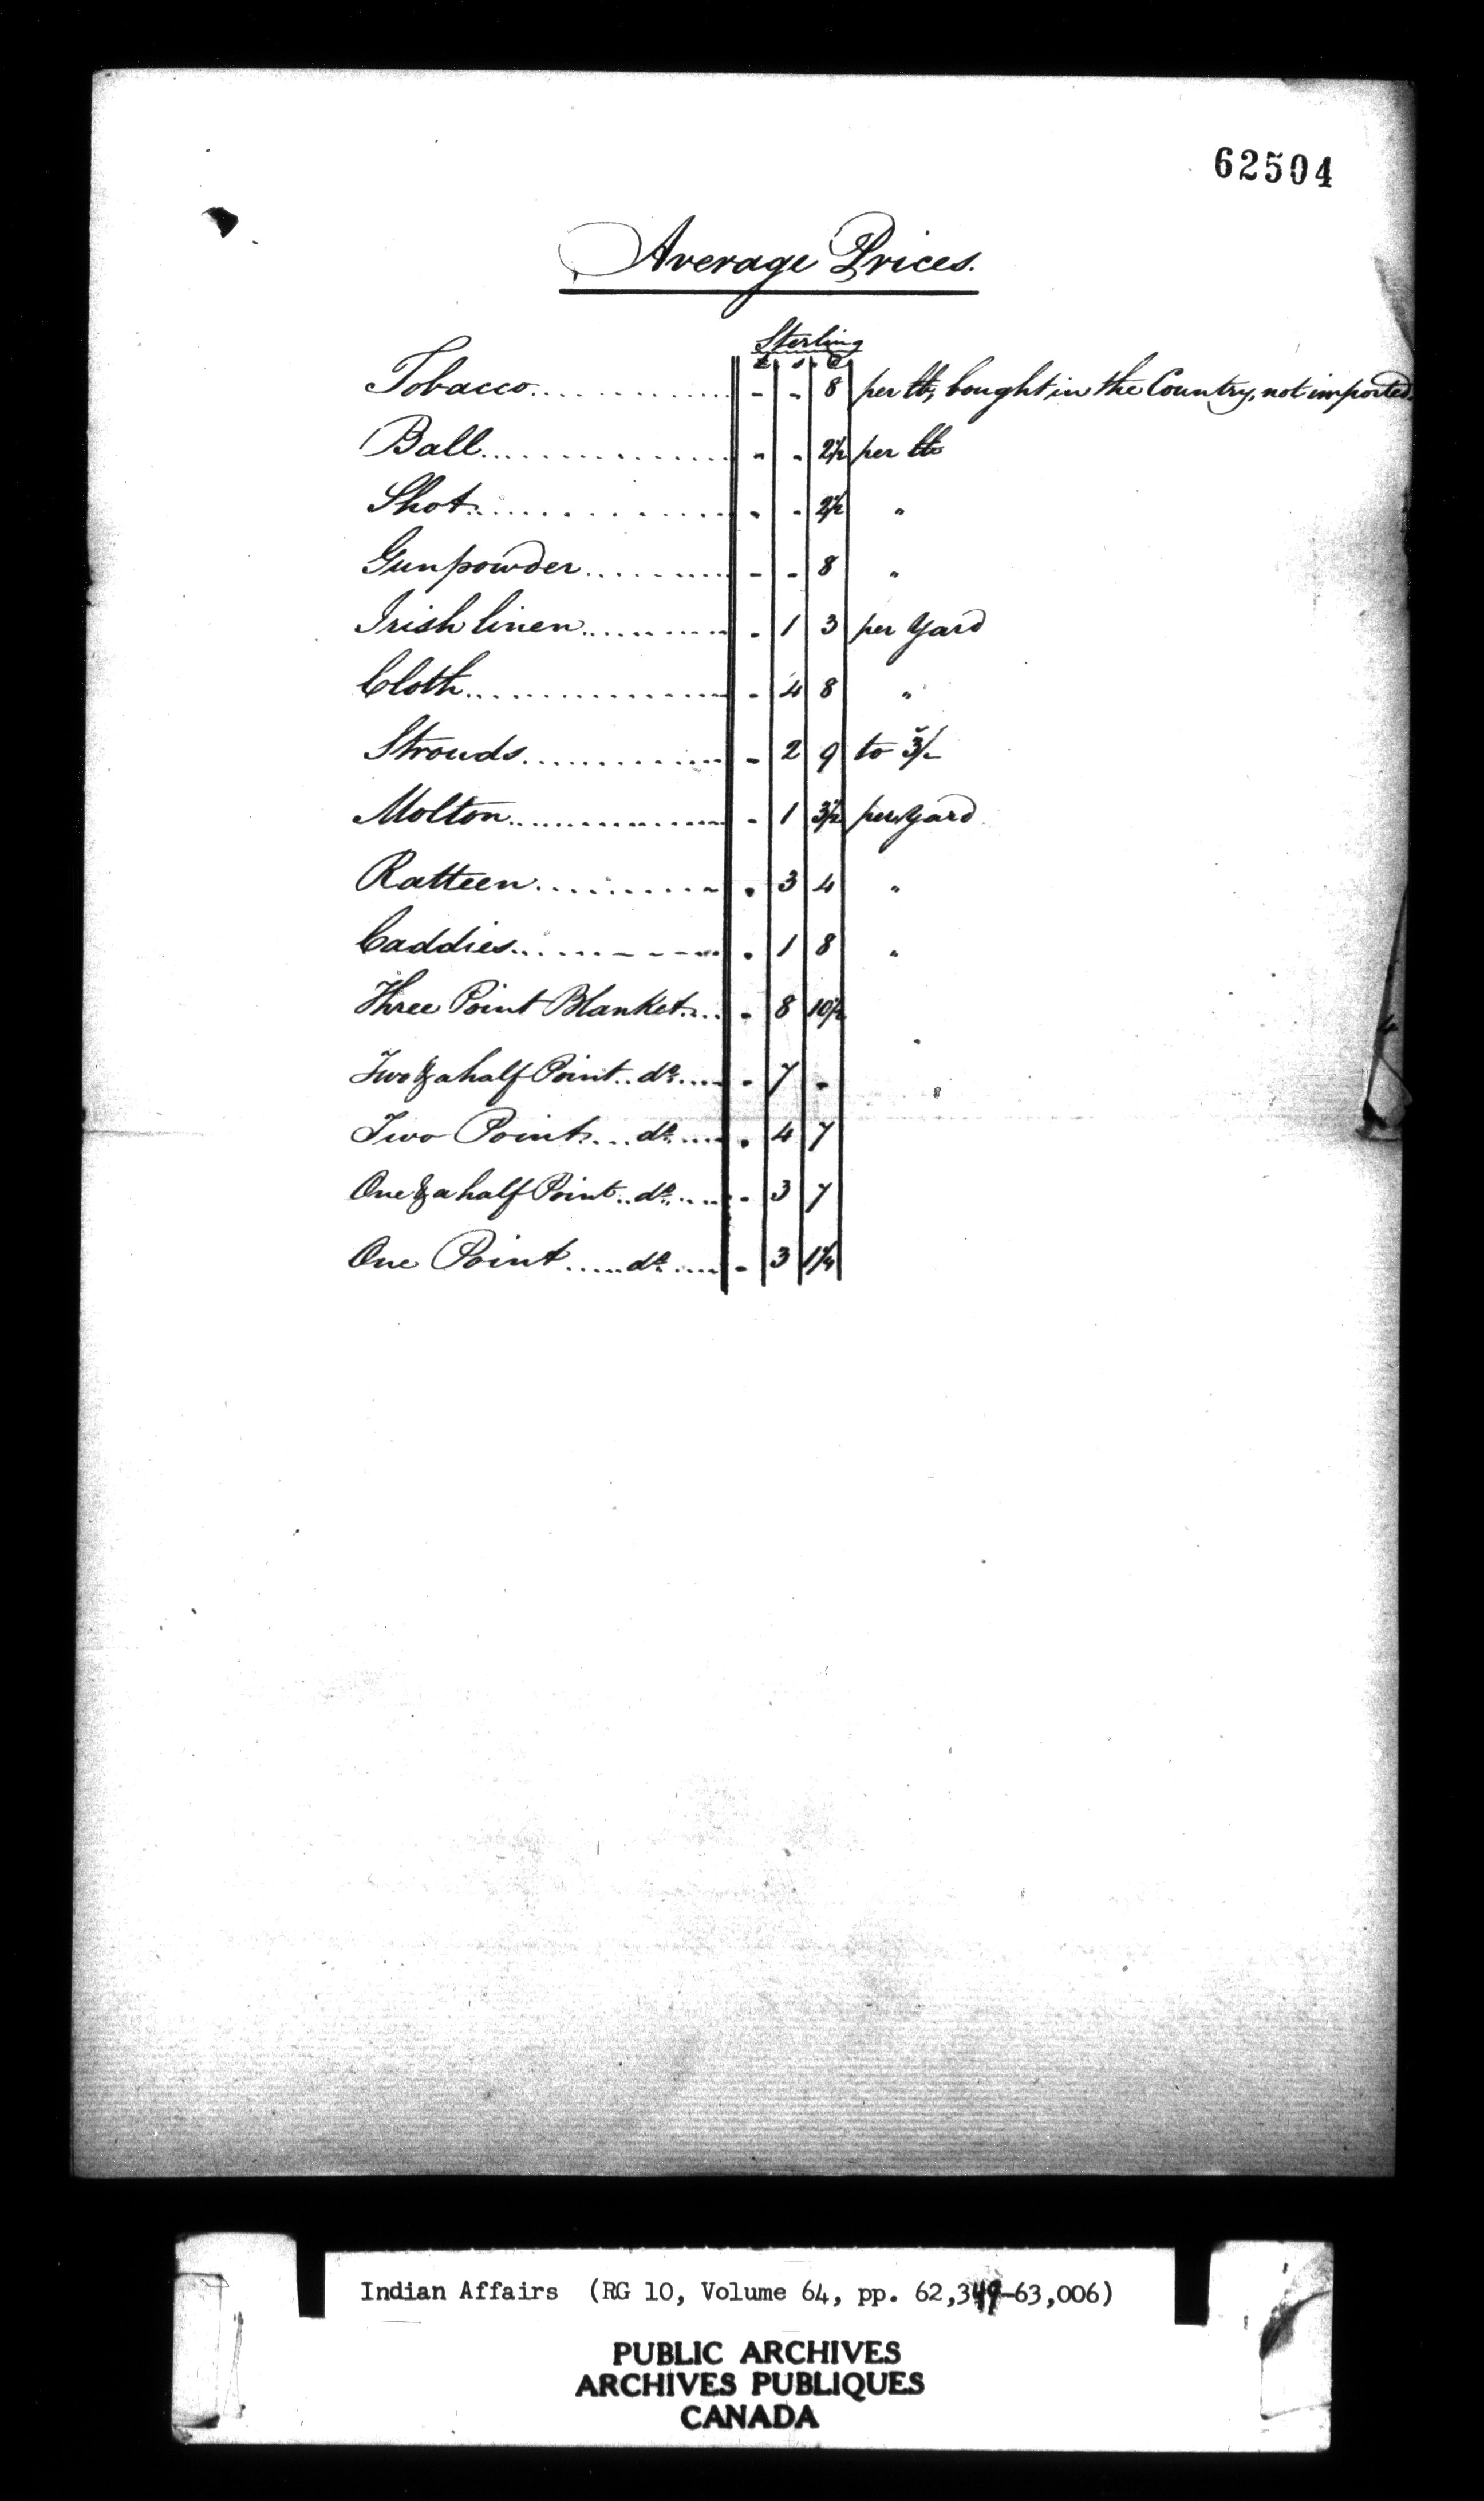 62504
Average Prices.
Sterling
£ s. D
Tobacco............. - - 8 per lb, bought in the Country, not imported.
Ball................ - - 2½ per lb
Shot................ - - 2½ "
Gunpowder........... - - 8 "
Irish linen........... - 1 3 per yard
Cloth................ - 4 8 "
Strouds............. - 2 9 to 3/-
Molton................ - 1 3½ per yard
Ratteen........... - 3 4 "
Caddies............ - 1 8 "
Three Point Blanket.... - 8 10½
Two & a half Point.. do.... - 7 -
Two Point.... do.... - 4 7
One & a half Point.. do.... - 3 7
One Point..... do.... - 3 1¼
Indian Affairs (RG 10, Volume 64, pp. 62,349-63,006)
PUBLIC ARCHIVES
ARCHIVES PUBLIQUES
CANADA